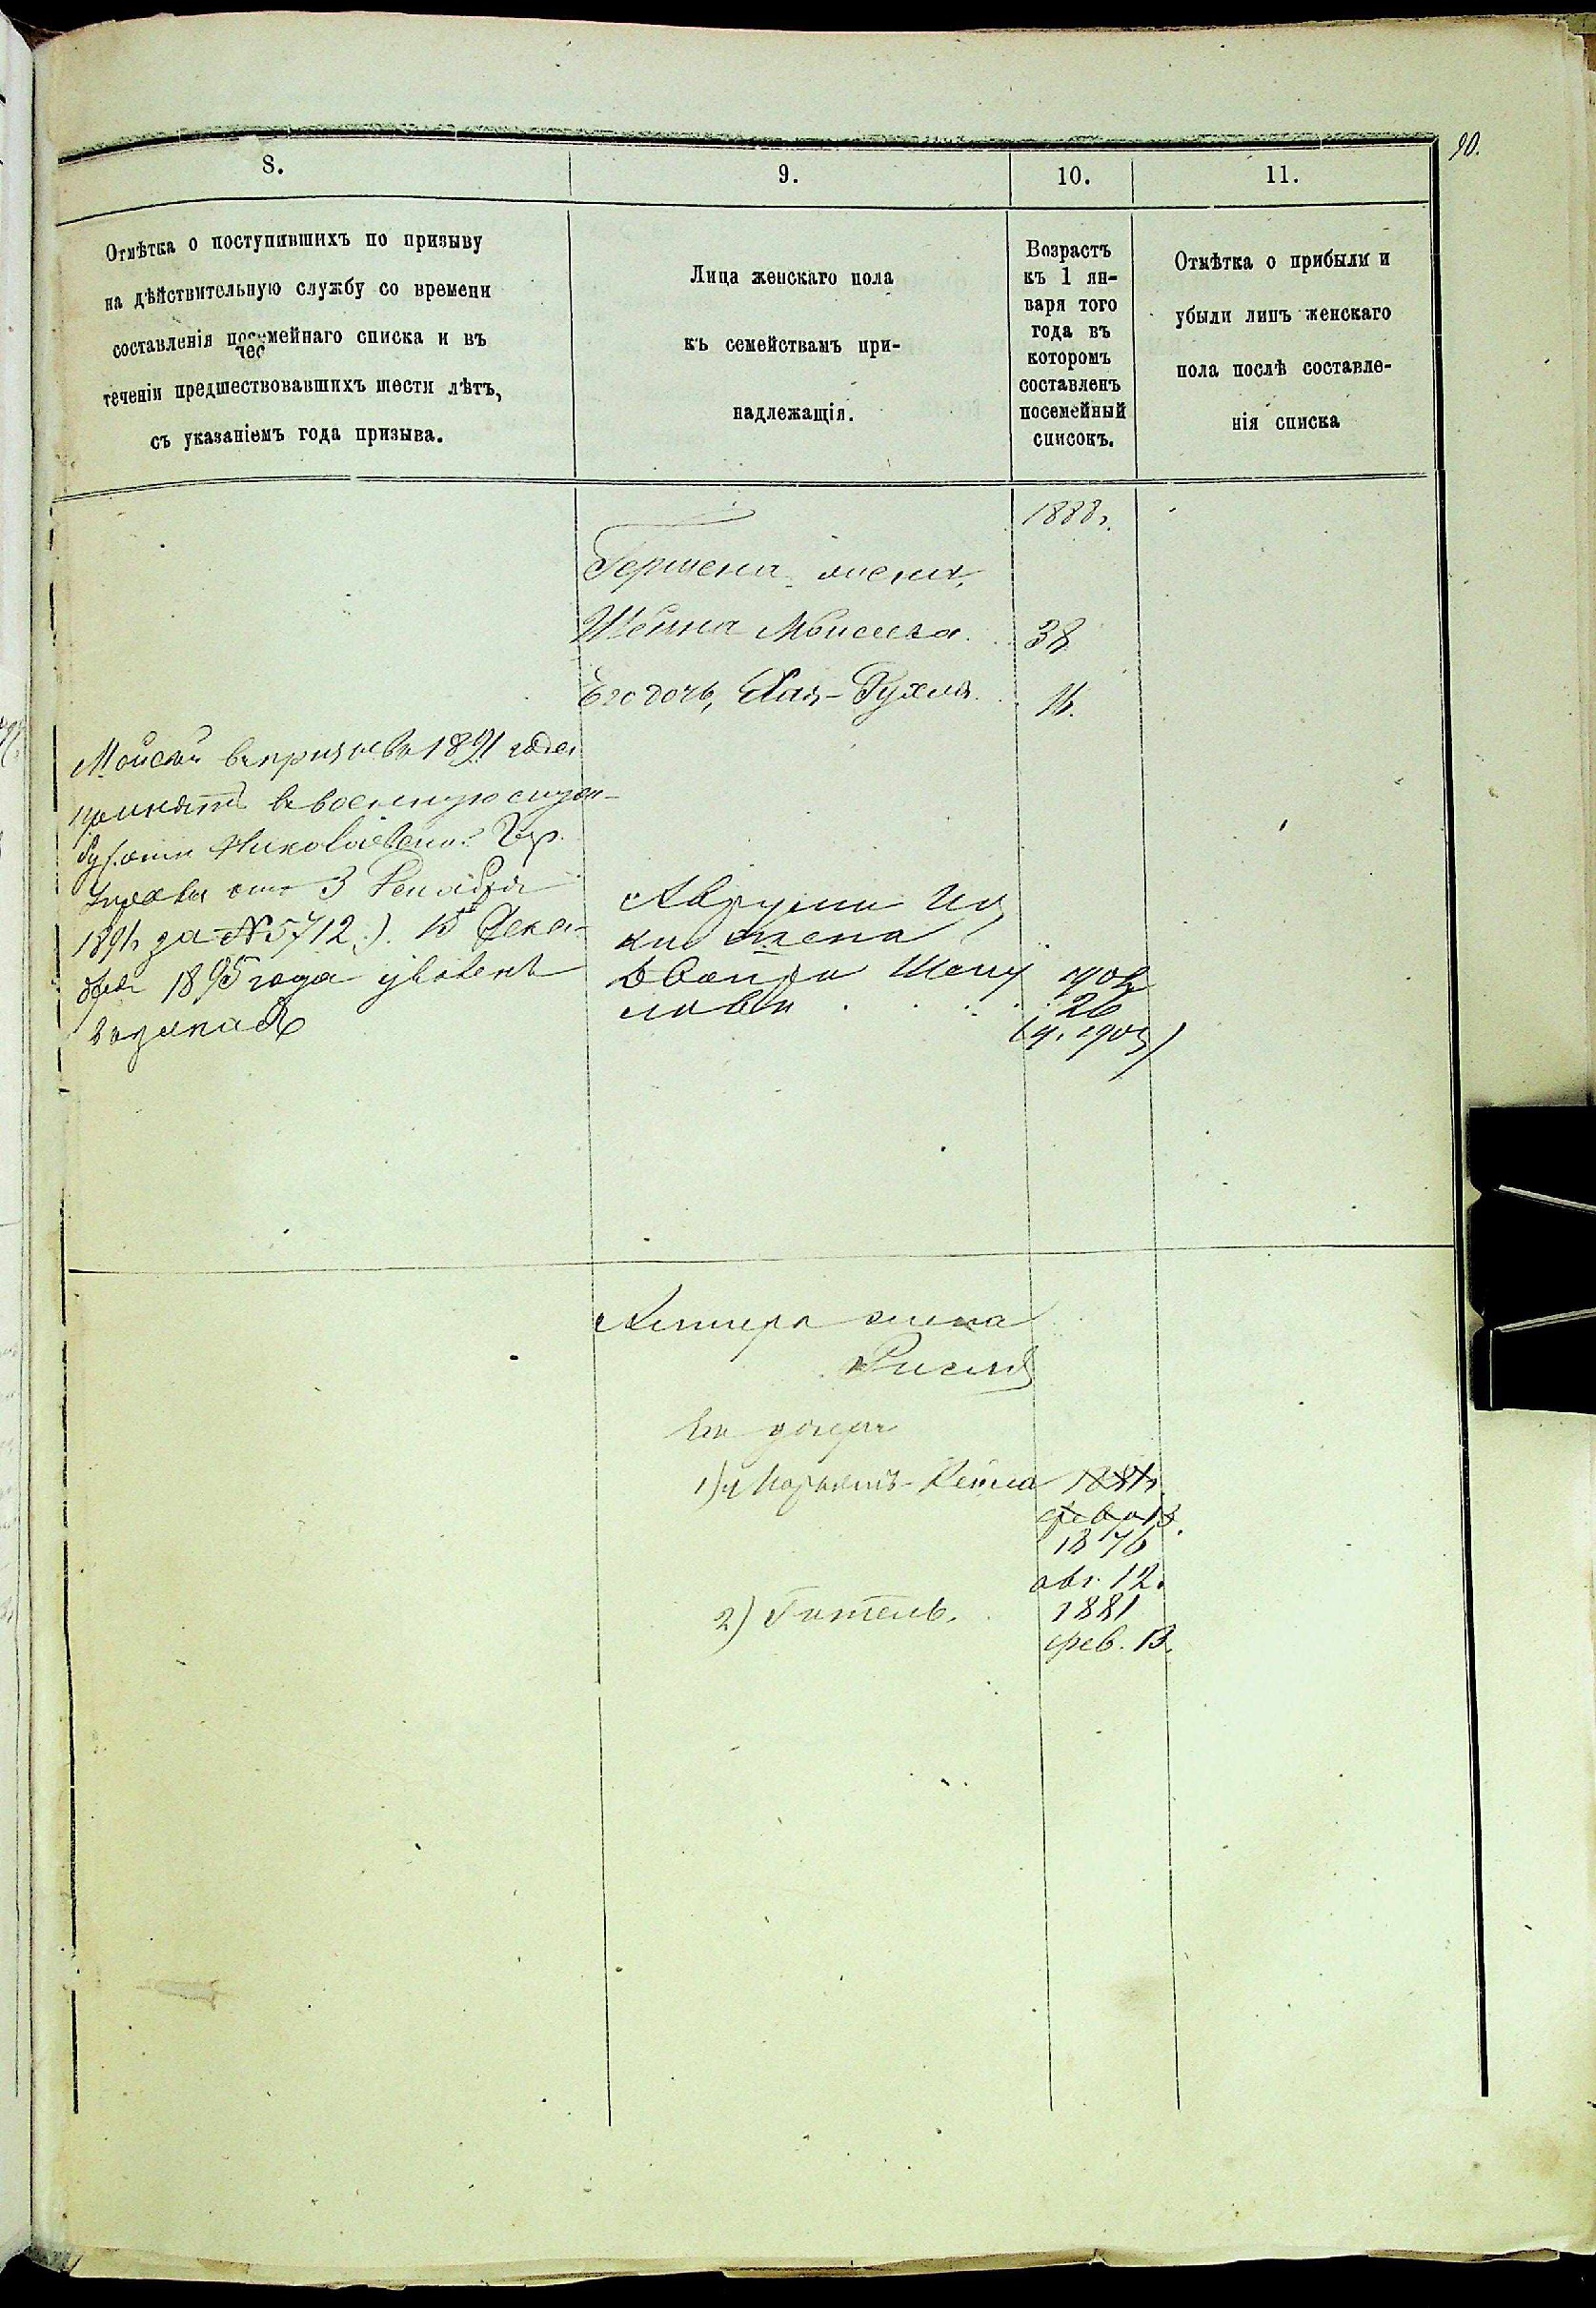 90.
8.
9.
10.
11.
Отмѣтка о поступившихъ по призыву
на дѣйствительную службу со времени
составленія посемейнаго списка и въ
теченіи предшествовавшихъ шести лѣтъ,
съ указаніемъ года призыва.
Лица женскаго пола
къ семействамъ при-
надлежащія.
Возрастъ
къ 1 ян-
варя того
года въ
которомъ
составленъ
посемейный
списокъ.
Отмѣтка о прибыли и
убыли лицъ женскаго
пола послѣ составле-
нія списка
1888г.
Гершена жена,
Шейна Мошкова 38
Его дочь, Хая-Рухля 16.
въ призывъ 1891 года
принятъ въ военную служ-
Николаевск. Гор.
Управы отъ 3 Декабря
1891г. за № 5712.). 15 Дека-
бря 1895 года уволенъ
въ запасъ
жена
Двойра
26
(ч. 1903)
жена
Рися
Его дочери
1) Марьямъ-Лейка 1881г.
фев. 13.
1876
авг. 12.
2) Гитель. 1881
фев. 13.